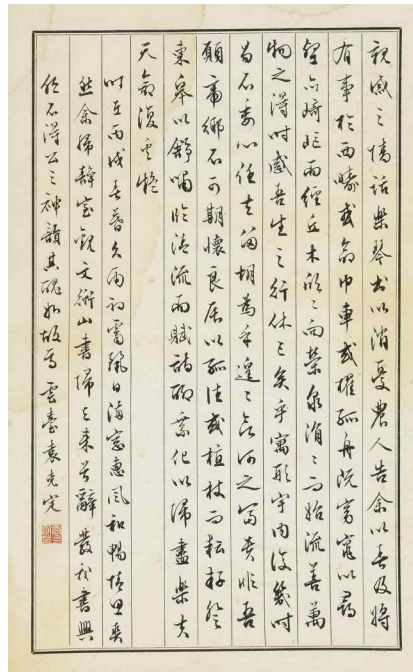 親戚之情話樂琴書以消憂農人告余以春及將
有事於西疇或命巾車或櫂孤舟既窈窕以尋
壑亦崎嶇而經丘木欣〻而向榮泉涓〻而始流善萬
物之得時感吾生之行休已矣乎寓形宇內復幾時
曷不委心任去留胡為乎遑〻欲何之富貴非吾
願帝鄉不可期懷良辰以孤往或植杖而耘耔登
東皋以舒嘯臨清流而賦詩聊乘化以歸盡樂夫
天命復奚疑
時在丙戌春暮久雨初霽日海窗惠風和暢情思奕
然余掃靜室觀文衡山書歸去來兮辭發我書興
但不得公之神韻其醜如故焉雲臺袁克完